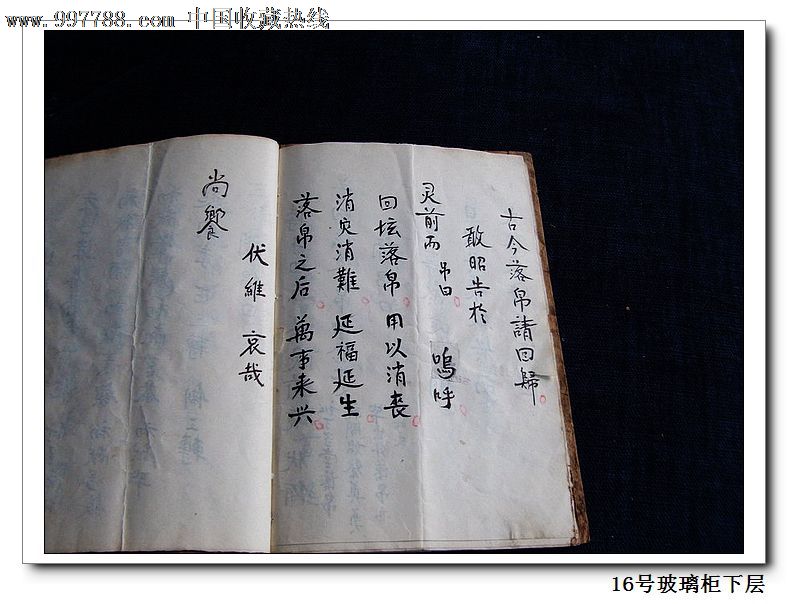 www.997788.com 中国收藏热线
古今落帛請回歸
敢昭告於
灵前而 吊曰 嗚呼
回坛落帛 用以消丧
消灾消難 延福延生
落帛之后 萬事来兴
伏維 哀哉
尚饗
16号玻璃柜下层